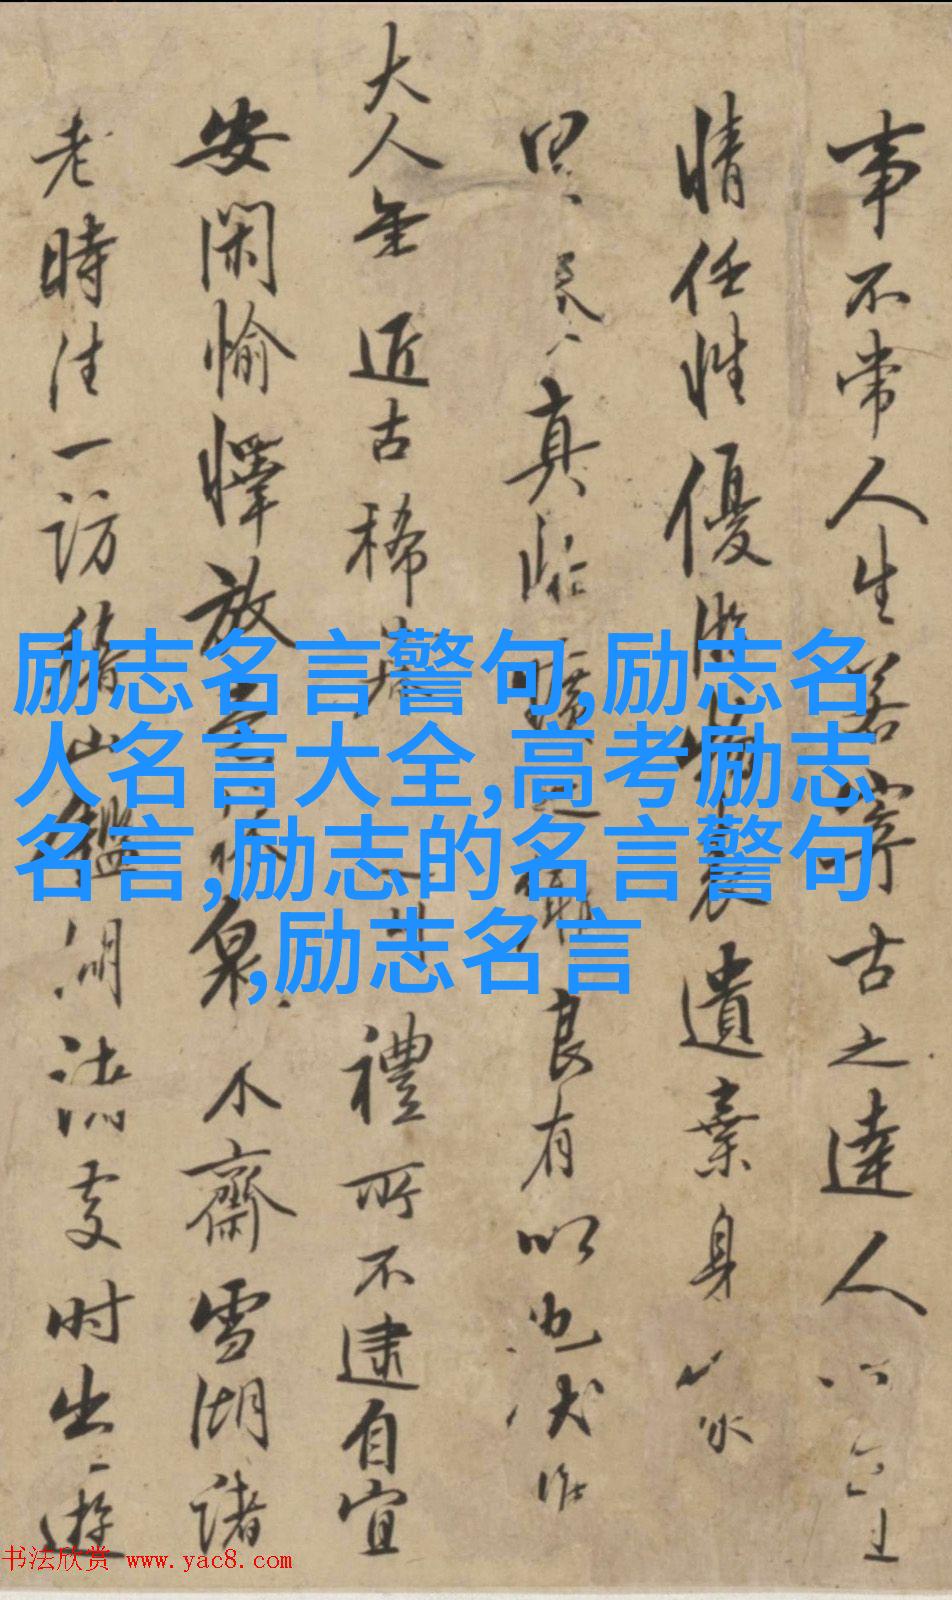 事不常人生若寄古之達人
情任性優游遺棄身
真良有以也
大人年近古稀禮所不逮自宜
安閑愉懌放泉木齋雪湖諸
老時往一訪稽山鑑湖諸處时出一遊
励志名言警句,励志名
人名言大全,高考励志
名言,励志的名言警句
,励志名言
书法欣赏 www.yac8.com